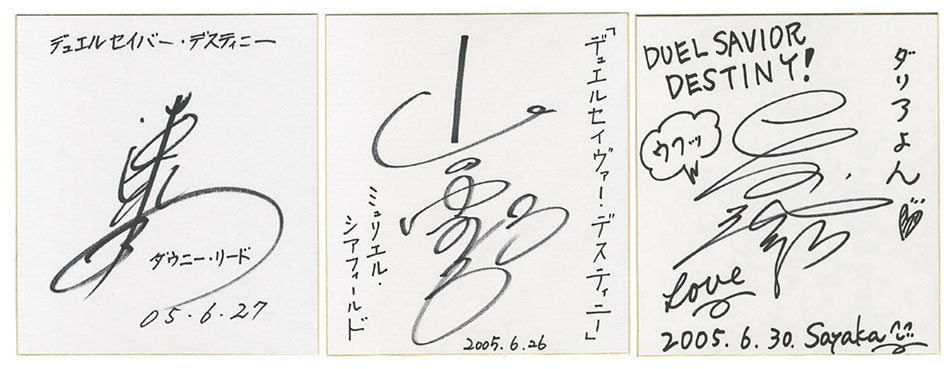 デュエルセイバー・デスティニー
ダウニー・リード
05.6.27
「デュエルセイヴァー・デスティニー」
ミュリエル・
シアフィールド
2005.6.26
DUEL SAVIOR
DESTINY!
ダリアよん
ウフッ
Love
2005.6.30. Sayaka